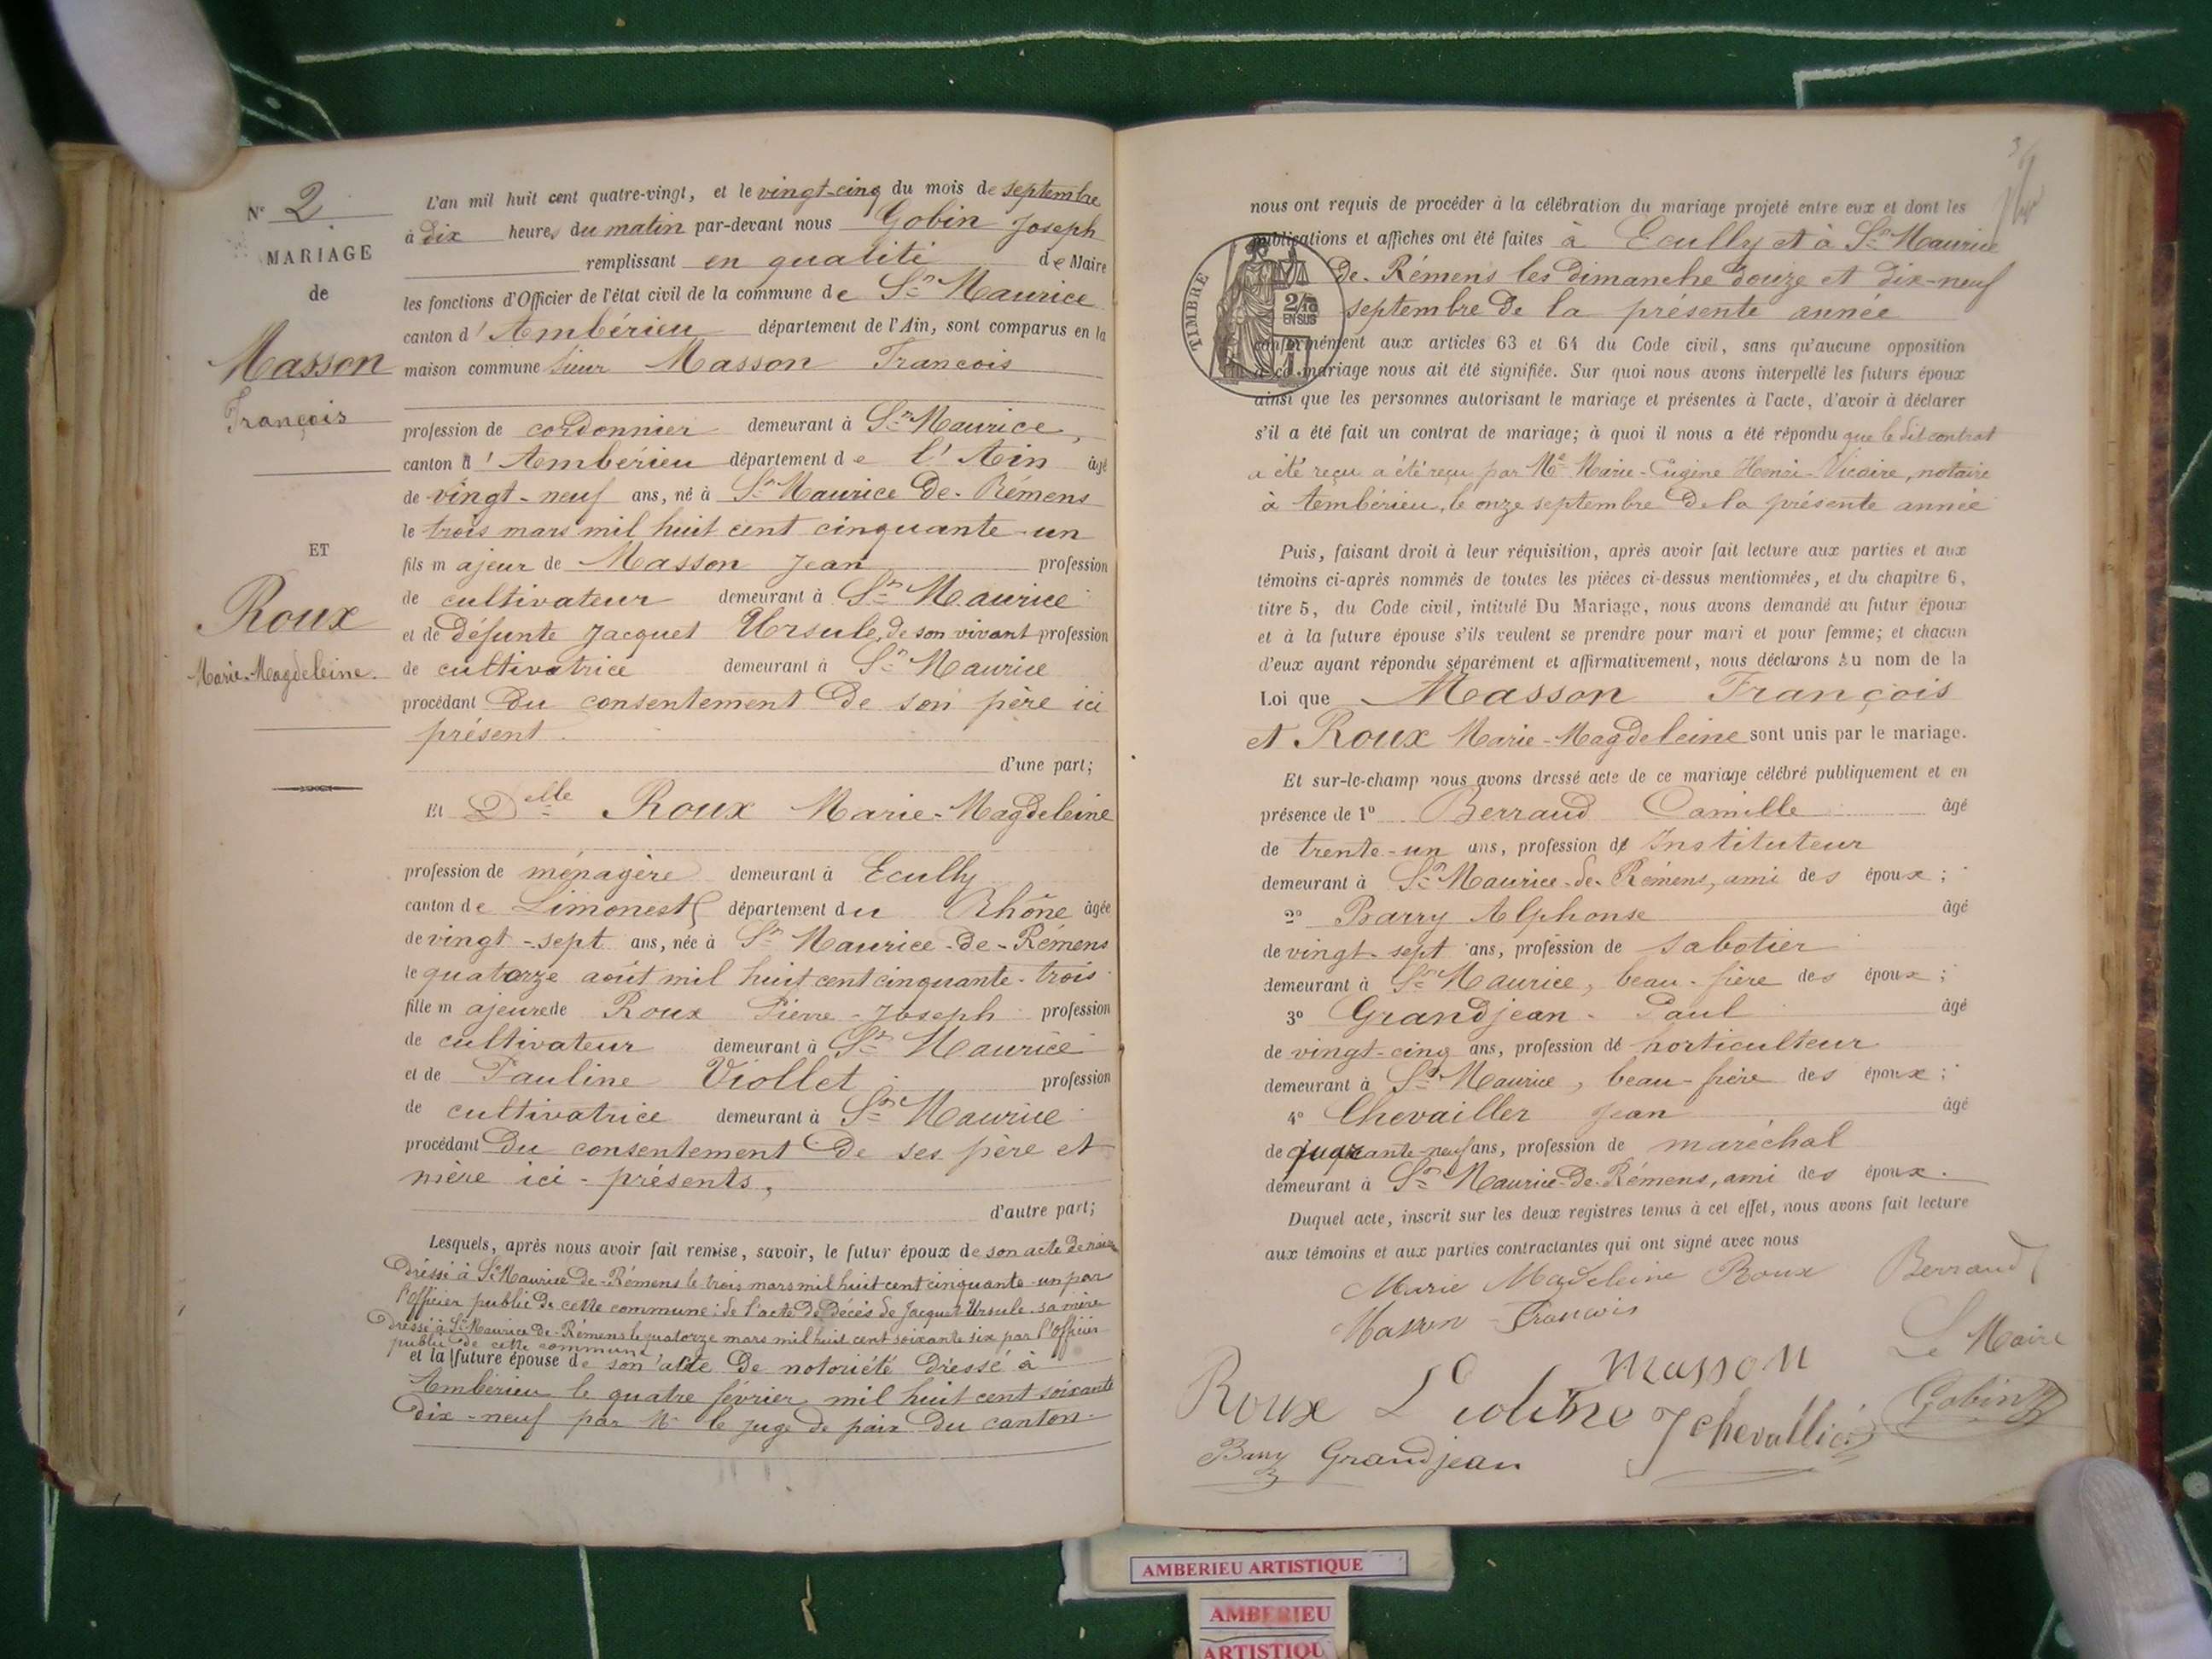 N° 2
MARIAGE
de
Masson
François
ET
Roux
Marie-Magdeleine.
L'an mil huit cent quatre-vingt, et le vingt-cinq du mois de septembre
à dix heures du matin par-devant nous Gobin Joseph
remplissant en qualité de Maire
les fonctions d'Officier de l'état civil de la commune de St Maurice
canton d'Ambérieu département de l'Ain, sont comparus en la
maison commune sieur Masson Francois
profession de cordonnier demeurant à St Maurice,
canton d'Ambérieu département de l'Ain âgé
de vingt-neuf ans, né à St Maurice-de-Rémens
le trois mars mil huit cent cinquante-un
fils majeur de Masson Jean profession
de cultivateur demeurant à St Maurice
et de défunte Jacquet Ursule, de son vivant profession
de cultivatrice demeurant à St Maurice
procédant du consentement de son père ici
présent.
d'une part;
Et Delle Roux Marie-Magdeleine
profession de ménagère demeurant à Ecully
canton de Limonest département du Rhône âgée
de vingt-sept ans, née à St Maurice-de-Rémens
le quatorze août mil huit cent cinquante-trois
fille majeure de Roux Pierre-Joseph profession
de cultivateur demeurant à St Maurice
et de Pauline Viollet profession
de cultivatrice demeurant à St Maurice
procédant du consentement de ses père et
mère ici-présents,
d'autre part;
Lesquels, après nous avoir fait remise, savoir, le futur époux de son acte de
dressé à St Maurice-de-Rémens le trois mars mil huit cent cinquante-un par
l'officier public de cette commune; de l'acte de décès de Jacquet Ursule sa mère
dressé à St Maurice-de-Rémens le quatorze mars mil huit cent soixante six par l'officier
public de cette commune
et la future épouse de son acte de notoriété dressé à
Ambérieu le quatre février mil huit cent soixante
dix-neuf par Mr le juge de paix du canton.
nous ont requis de procéder à la célébration du mariage projeté entre eux et dont les
publications et affiches ont été faites à Ecully et à St Maurice
de-Rémens les dimanche douze et dix-neuf
septembre de la présente année
TIMBRE
2/10
EN SUS
conformément aux articles 63 et 64 du Code civil, sans qu'aucune opposition
à ce mariage nous ait été signifiée. Sur quoi nous avons interpellé les futurs époux
ainsi que les personnes autorisant le mariage et présentes à l'acte, d'avoir à déclarer
s'il a été fait un contrat de mariage; à quoi il nous a été répondu que le dit contrat
a été reçu a été reçu par Me Marie-Eugène Henri-Vicaire, notaire
à Ambérieu, le onze septembre de la présente année
Puis, faisant droit à leur réquisition, après avoir fait lecture aux parties et aux
témoins ci-après nommés de toutes les pièces ci-dessus mentionnées, et du chapitre 6,
titre 5, du Code civil, intitulé Du Mariage, nous avons demandé au futur époux
et à la future épouse s'ils veulent se prendre pour mari et pour femme; et chacun
d'eux ayant répondu séparément et affirmativement, nous déclarons Au nom de la
Loi que Masson François
et Roux Marie-Magdeleine sont unis par le mariage.
Et sur-le-champ nous avons dressé acte de ce mariage célébré publiquement et en
présence de 1° Berraud Camille âgé
de trente-un ans, profession de Instituteur
demeurant à St Maurice-de-Rémens, ami des époux;
2° Barry Alphonse âgé
de vingt-sept ans, profession de sabotier
demeurant à St Maurice, beau-frère des époux;
3° Grandjean Paul âgé
de vingt-cinq ans, profession de horticulteur
demeurant à St Maurice, beau-frère des époux;
4° Chevailler Jean âgé
de quarante-neuf ans, profession de maréchal
demeurant à St Maurice-de-Rémens, ami des époux.
Duquel acte, inscrit sur les deux registres tenus à cet effet, nous avons fait lecture
aux témoins et aux parties contractantes qui ont signé avec nous
Marie Madeleine Roux Berraud
Masson Francois
Le Maire
masson
Roux
J chevallier
Gobin
Barry Grandjean
AMBERIEU ARTISTIQUE
AMBERIEU
ARTISTIQU